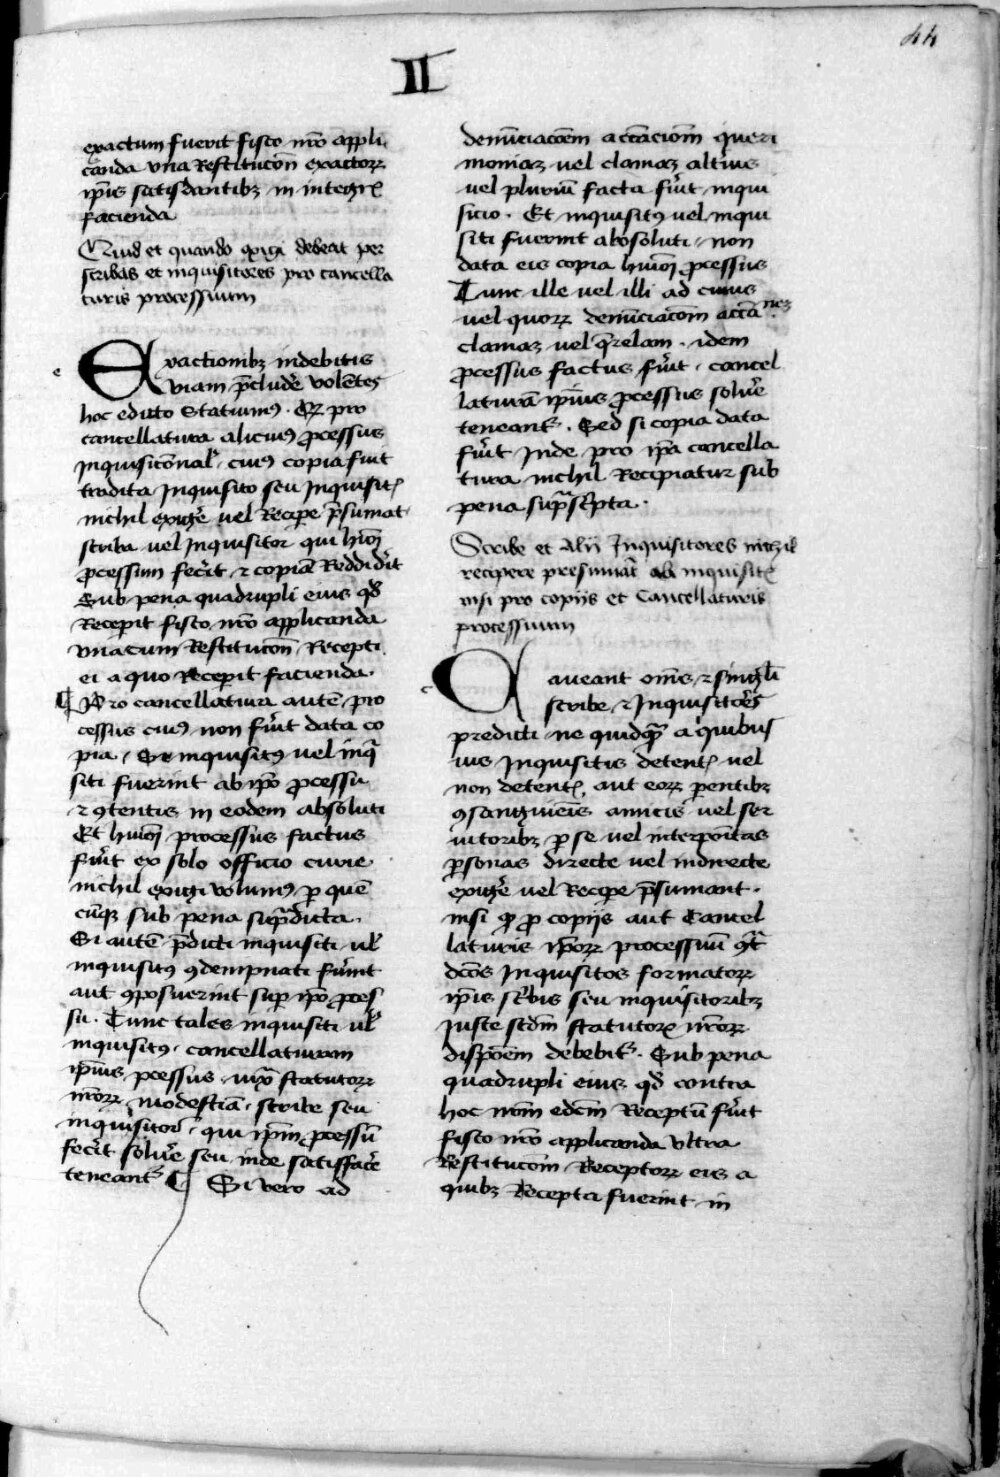 44
II
exactum fuerit fisco nr̄o appli
canda vna Restitucōn exactorꝝ
ip̄is satisdantibꝫ in integrꝭ
facienda
Quid et quando exigi debeat per
scribas et inquisitores pro cancella
turis processuum
e
Exactionibꝫ indebitis
viam p̄cluder̄ volētes
hoc edicto Statuimꝰ · Qꝫ pro
cancellatura alicuiꝰ ꝓcessus
inquisicōnalꝭ, cuiꝰ copia fuit
tradita Inquisito seu Inquisitꝭ
nichil exiger̄ vel Recipe p̄sumat
scriba vel Inquisitor qui hiōi
ꝓcessum fecit̄ ⁊ copiā Reddidit̄
Sub pena quadrupli eius qd̄
Recepit fisco nr̄o applicanda
vna cum Restitucōn Recepti
ei a quo Recepit facienda ·
¶ Pro cancellatura autē pro
cessus cuiꝰ non fuīt data co
pia, Et inquisitꝰ vel inqͥ
siti fuerint ab ip̄o ꝓcessu
⁊ ꝯtentis in eodem absoluti
Et hiōi processus factus
fuīt ex solo officio curie
nichil exigi volumꝰ ꝑ quē
cūqꝫ sub pena sup̄dicta ·
Si autē p̄dicti inquisiti ul̄
inquisitꝰ ꝯdempnati fuīnt
aut ꝯposuerint suꝑ ip̄o ꝓces
su · Tunc tales inquisiti ul̄
inquisitꝰ, cancellaturam
ip̄ius ꝓcessus, iuxᵃ statutorꝝ
nr̄orꝝ modestiā, scribe seu
inquisitor̄, qui ip̄m ꝓcessū
fecit̄ soluer̄ seu inde satisfacer̄
teneantꝰ ¶ Si vero ad
denūciacōem accusacōm queri
moniaꝫ vel clamaꝫ altius
vel pluriū facta fuīt inqui
sicio · Et inquisitꝰ vel inqui
siti fuerint absoluti, non
data eis copia hiōi ꝓcessus
Tunc ille vel illi ad cuius
vel quorꝝ denūciacōm accūa nes
clamaꝫ vel q̄relam · idem
ꝓcessus factus fuīt, cancel
laturā ip̄ius ꝓcessus soluer̄
teneantꝰ · Sed si copia data
fuīt inde pro ip̄a cancella
tura nichil Recipiatur sub
pena sup̄scr̄pta ·
Scribe et Alii Inquisitores nichil
recipere presumāt ab inquisitꝭ
nisi pro copiis et Cancellaturis
processuum
c
Caueant om̄s ⁊ singl̄i
scribe ⁊ Inquisitor̄es
predicti ne quidqᵃ a quibus
uis Inquisitis detentꝭ vel
non detentꝭ, aut eorꝝ ꝑentibꝫ
ꝯsanguineis amicis vel ser
uitoribꝫ ꝑ se vel interpositas
ꝑsonas directe vel indirecte
exiger̄ vel Recipe p̄sumant ·
nisi qᵈ ꝓ copijs aut Cancel
laturis ip̄orꝝ processuū ꝯtᵃ
dcōs Inquisitos formatorꝝ
ip̄is scr̄bis seu inquisitoribꝫ
Juste scdm̄ statutorꝝ nr̄orꝝ
dispōem debebitꝰ · Sub pena
quadrupli eius qd̄ contra
hoc nr̄m edcm̄ Receptū fuīt
fisco nr̄o applicanda vltra
Restitucōm Receptorꝝ eis a
quibꝫ Recepta fuerint in